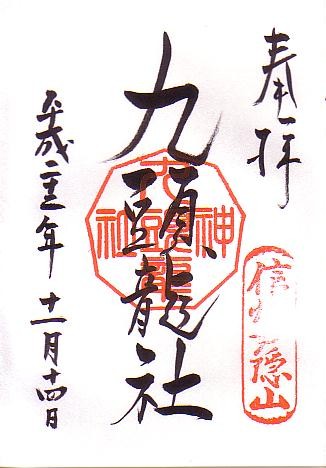 奉拝
信州戸隠山
九頭龍社
平成二十三年 十一月十四日